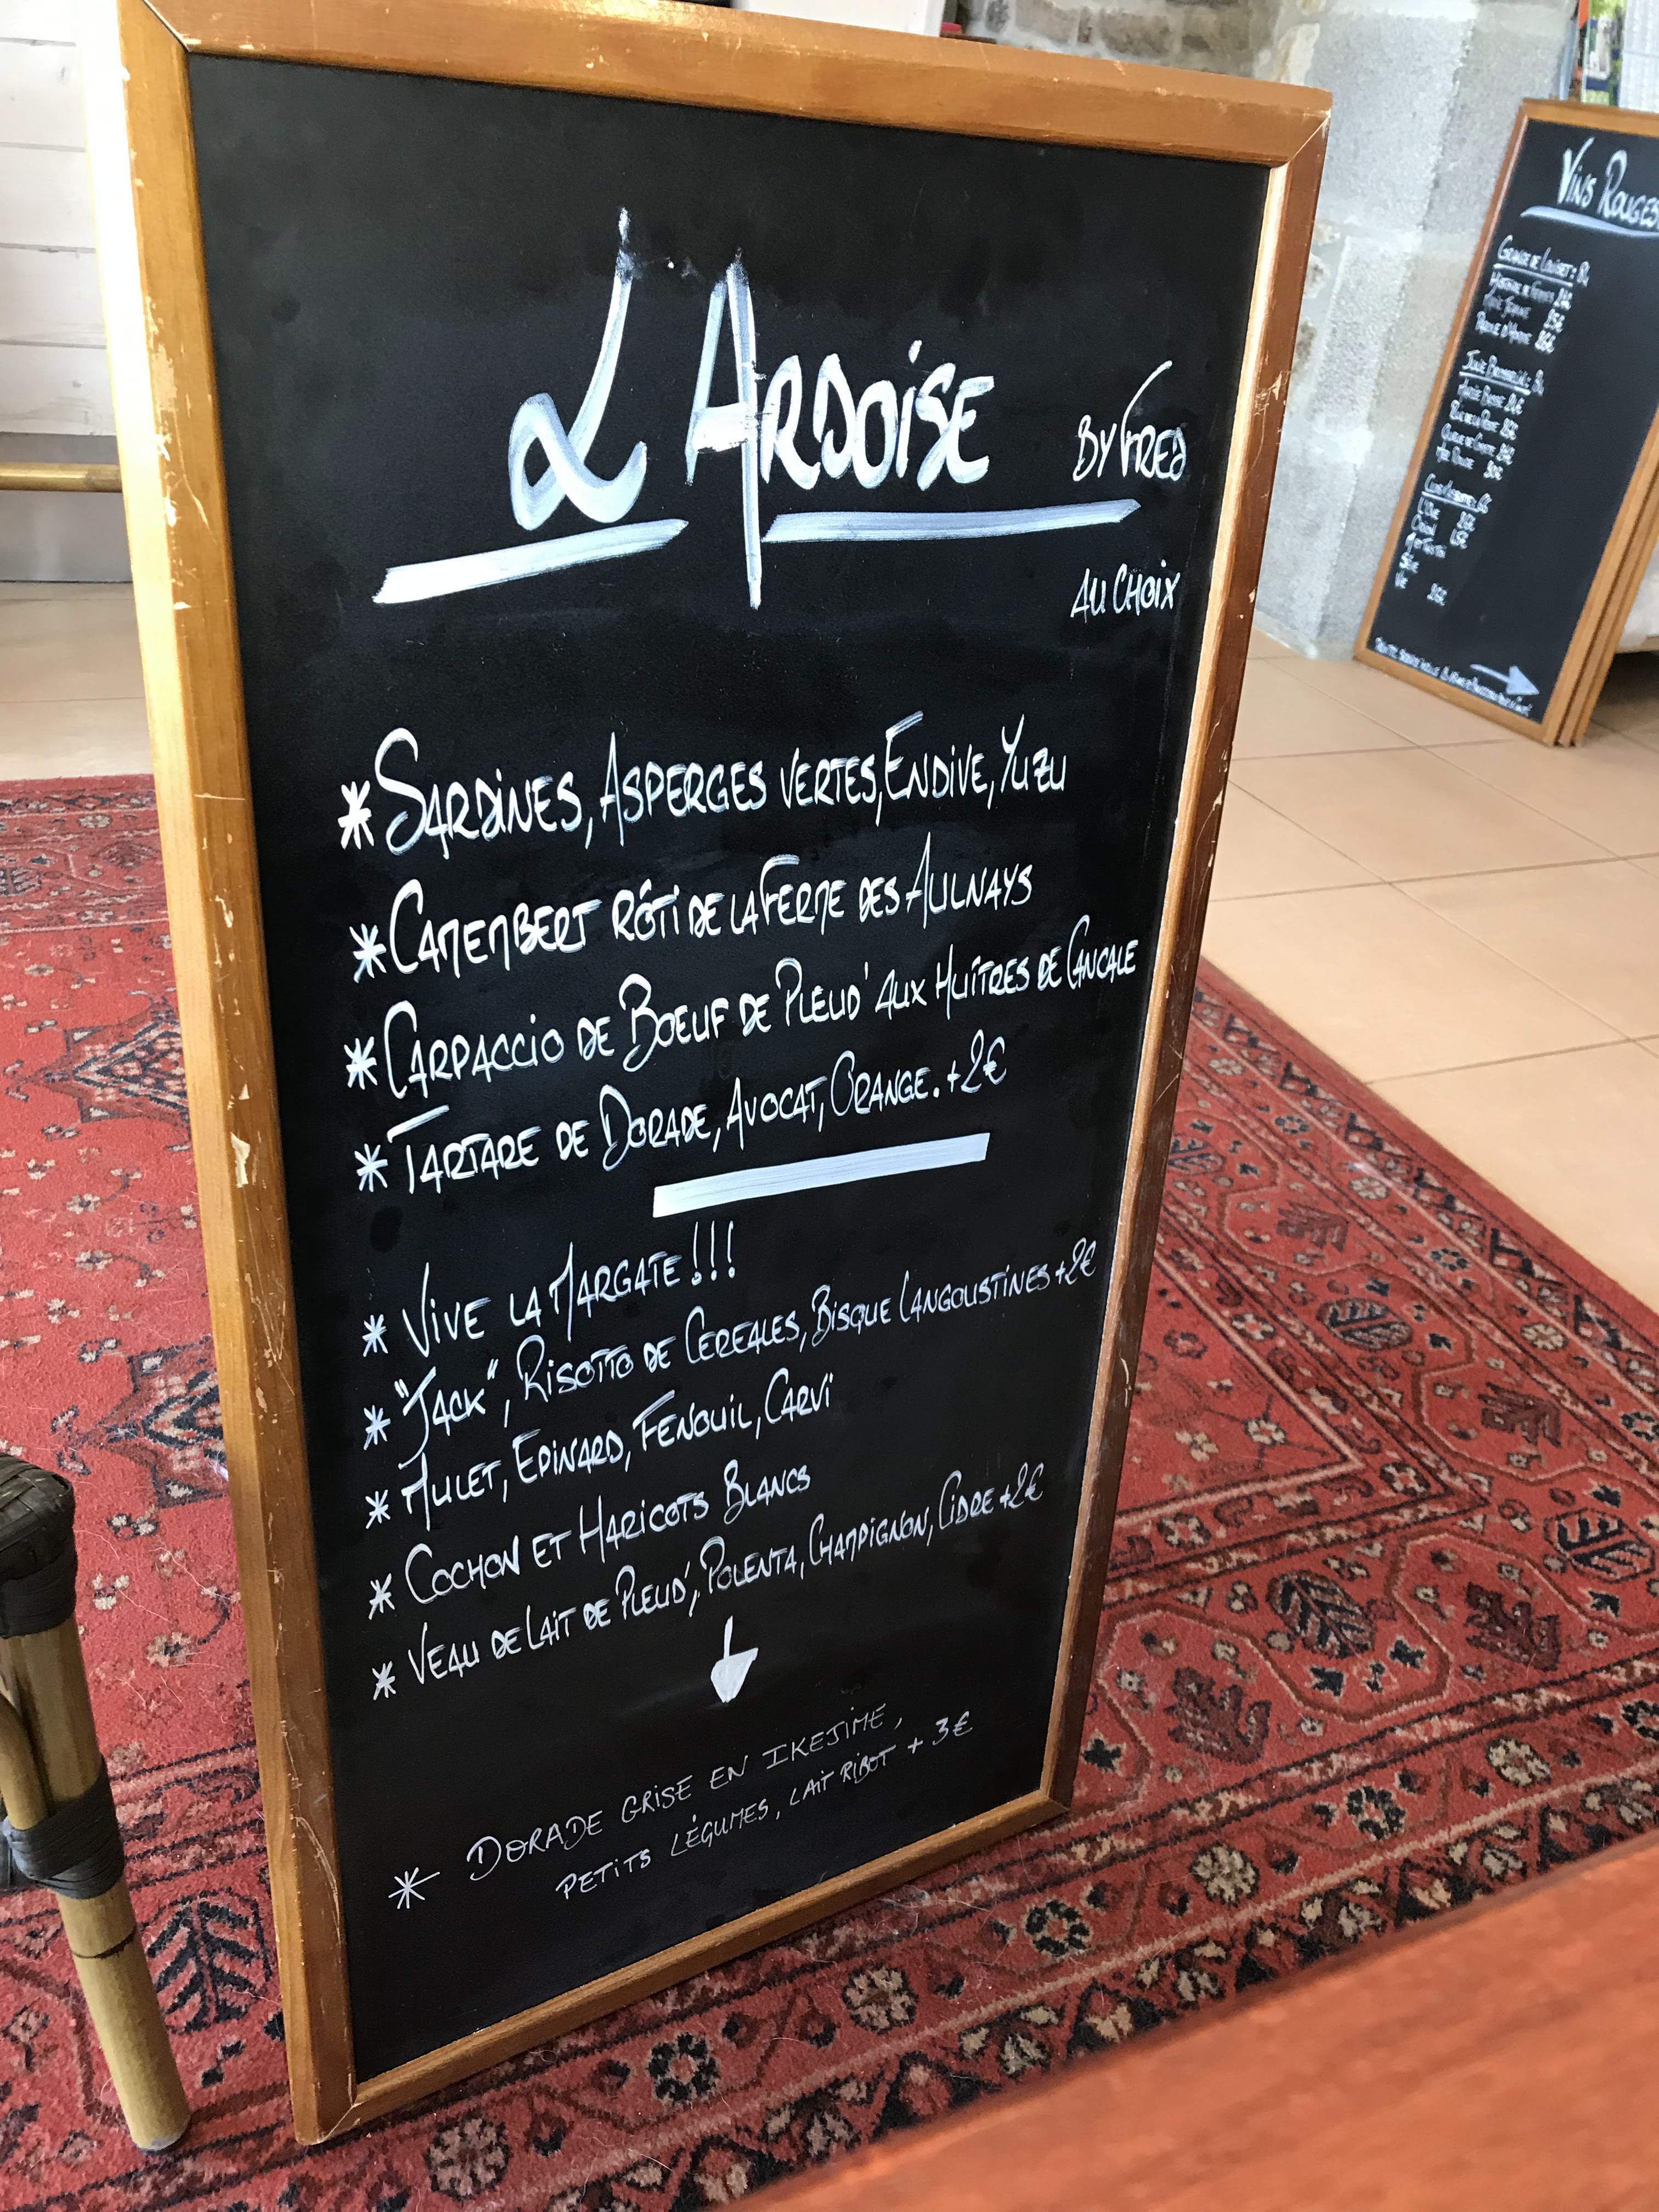 L'ARDOISE BY FRED
AU CHOIX
* SARDINES, ASPERGES VERTES, ENDIVE, YUZU
* CAMEMBERT RÔTI DE LA FERME DES AULNAYS
* CARPACCIO DE BOEUF DE PLEUD' AUX HUÎTRES DE CANCALE
* TARTARE DE DORADE, AVOCAT, ORANGE. +2€
* VIVE LA MARGATE!!!
* "JACK", RISOTTO DE CEREALES, BISQUE LANGOUSTINES +2€
* MULET, EPINARD, FENOUIL, CARVI
* COCHON ET HARICOTS BLANCS
* VEAU DE LAIT DE PLEUD', POLENTA, CHAMPIGNON, CIDRE +2€
* DORADE GRISE EN IKEJIME,
PETITS LÉGUMES, LAIT RIBOT + 3€
VINS ROUGES